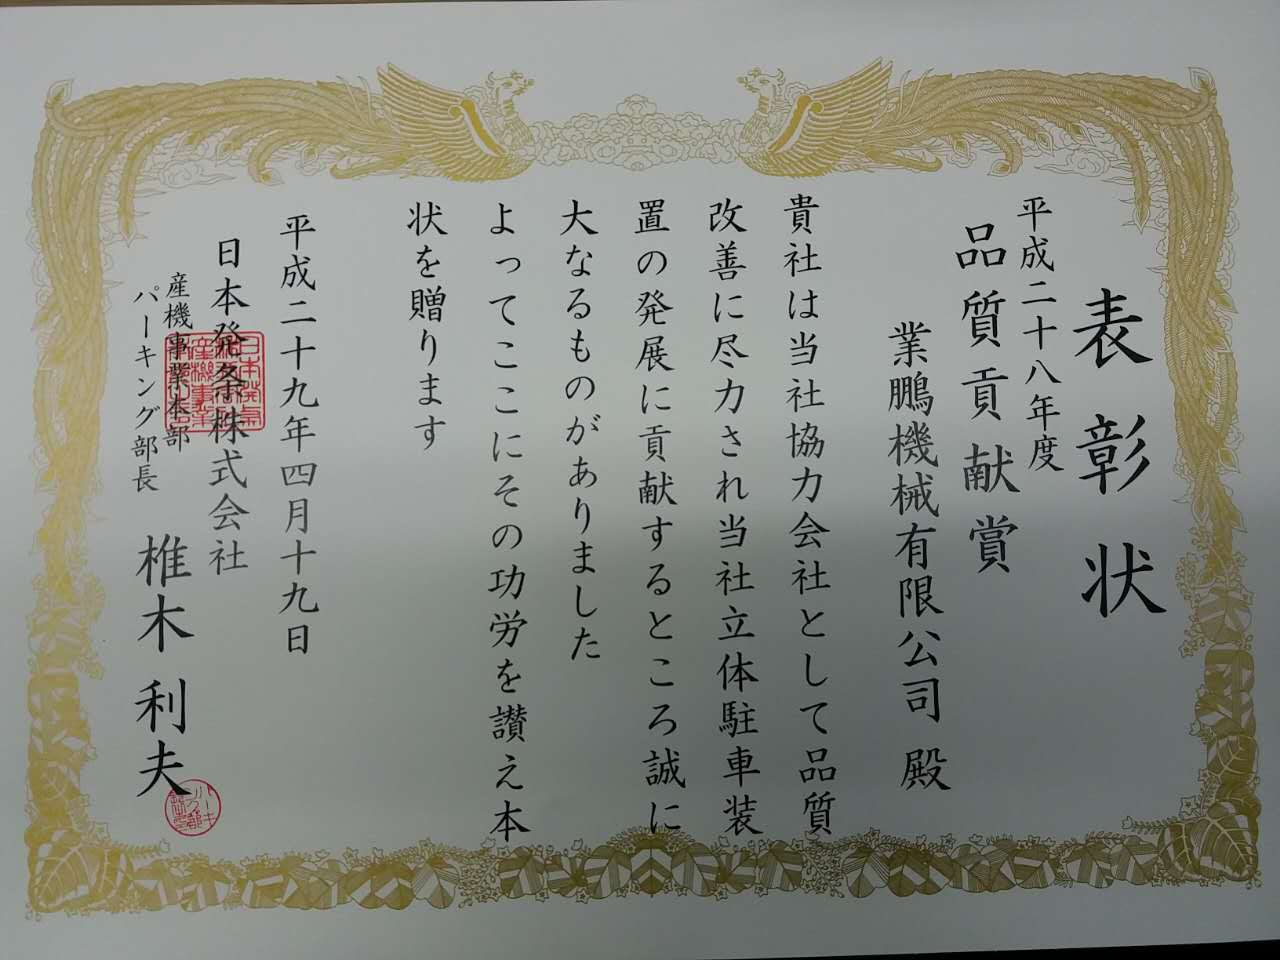 表彰状
平成二十八年度
品質貢献賞
業鵬機械有限公司 殿
貴社は当社協力会社として品質
改善に尽力され当社立体駐車装
置の発展に貢献するところ誠に
大なるものがありました
よってここにその功労を讃え本
状を贈ります
平成二十九年四月十九日
日本発条株式会社
産機事業本部
パーキング部長
椎木利夫